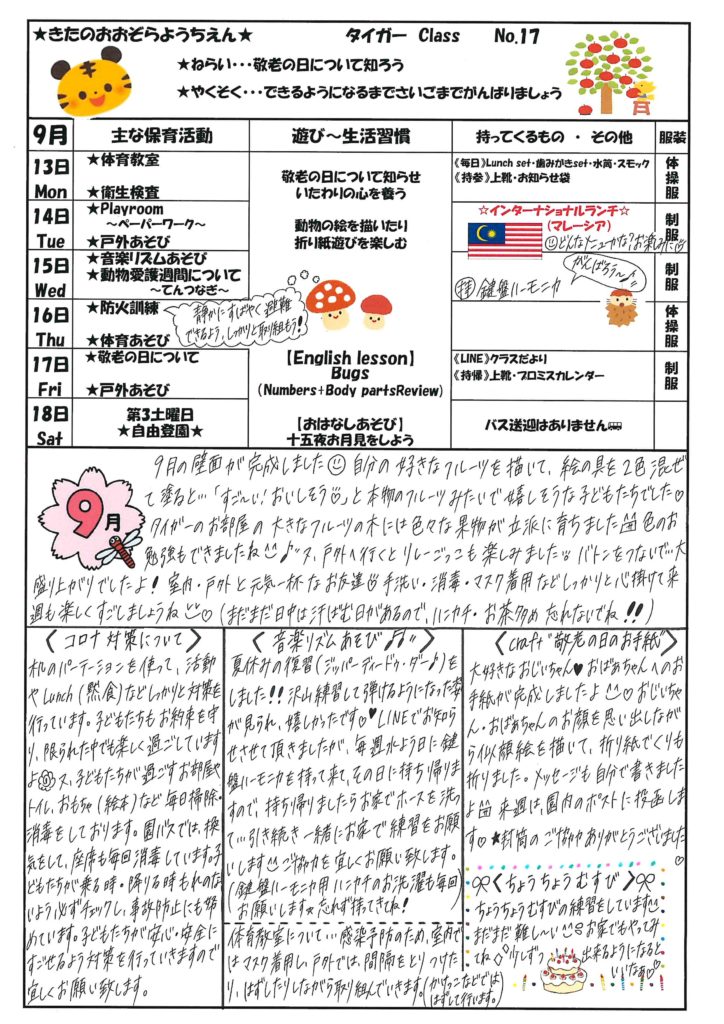 ★きたのおおぞらようちえん★ タイガー Class No.17
★ねらい・・・敬老の日について知ろう
★やくそく・・・できるようになるまでさいごまでがんばりましょう
9月 主な保育活動 遊び～生活習慣 持ってくるもの ・ その他 服装
13日
Mon
★体育教室
★衛生検査
敬老の日について知らせ
いたわりの心を養う
動物の絵を描いたり
折り紙遊びを楽しむ
《毎日》Lunch set・歯みがきset・水筒・スモック
《持参》上靴・お知らせ袋
体操服
14日
Tue
★Playroom
～ペーパーワーク～
★戸外あそび
☆インターナショナルランチ☆
(マレーシア)
どんなメニューかな?お楽しみ
制服
15日
Wed
★音楽リズムあそび
★動物愛護週間について
～てんつなぎ～
がんばろう～♪
(持)鍵盤ハーモニカ
制服
16日
Thu
★防火訓練
静かにすばやく避難
できるよう、しっかりと取り組もう!
★体育あそび
体操服
17日
Fri
★敬老の日について
★戸外あそび
【English lesson】
Bugs
(Numbers+Body partsReview)
《LINE》クラスだより
《持帰》上靴・プロミスカレンダー
制服
18日
Sat
第3土曜日
★自由登園★
【おはなしあそび】
十五夜お月見をしよう
バス送迎はありません
9月
9月の壁面が完成しました 自分の好きなフルーツを描いて、絵の具を2色混ぜ
て塗ると…「すご～い!おいしそう」と本物のフルーツみたいで嬉しそうな子どもたちでした♡
タイガーのお部屋の大きなフルーツの木には色々な果物が立派に育ちました 色のお
勉強もできましたね♪又、戸外へ行くとリレーごっこも楽しみました バトンをつないで…大
盛り上がりでしたよ! 室内・戸外と元気一杯なお友達 手洗い・消毒・マスク着用などしっかりと心掛けて来
週も楽しくすごしましょうね♡(まだまだ日中は汗ばむ日があるので、ハンカチ・お茶多め忘れないでね!!)
〈コロナ対策について〉
机のパーテーションを使って、活動
やLunch(黙食)などしっかりと対策を
行っています。子どもたちもお約束を守
り、限られた中でも楽しく過ごしています
よ 又、子どもたちが過ごすお部屋や
トイレ、おもちゃ(絵本)など毎日掃除・
消毒をしております。園バスでは、換
気をして、座席も毎回消毒しています。子
どもたちが乗る時・降りる時もれのな
いよう、必ずチェックし、事故防止にも努
めています。子どもたちが安心・安全に
すごせるよう対策を行っていきますので
宜しくお願い致します。
〈音楽リズムあそび♪♫〉
夏休みの復習(ジッパーディードゥ・ダー♪)を
しました!!沢山練習して弾けるようになった姿
が見られ、嬉しかったです♥LINEでお知ら
せさせて頂きましたが、毎週水よう日に鍵
盤ハーモニカを持って来て、その日に持ち帰りま
すので、持ち帰りましたらお家でホースを洗っ
て…引き続き一緒にお家で練習をお願
いします ご協力を宜しくお願い致します。
(鍵盤ハーモニカ用ハンカチのお洗濯も毎回
お願いします★忘れず持ってきてね!
体育教室について…感染予防のため、室内で
はマスク着用し、戸外では、間隔をとりつけた
り、はずしたりしながら取り組んでいきます。(かけっこなどでは
はずして行います。)
〈craft "敬老の日のお手紙"〉
大好きなおじいちゃん♥おばあちゃんへのお
手紙が完成しましたよ♡おじいちゃ
ん・おばあちゃんのお顔を思い出しなが
ら似顔絵を描いて、折り紙でくりも
折りました。メッセージも自分で書きました
よ 来週は、園内のポストに投函しま
す♡★封筒のご協力ありがとうございました♡
〈ちょうちょうむすび〉
ちょうちょうむすびの練習をしています
まだまだ難し～い お家でもやってみ
てね♢少しずつ出来るようになると
いいなぁ♡